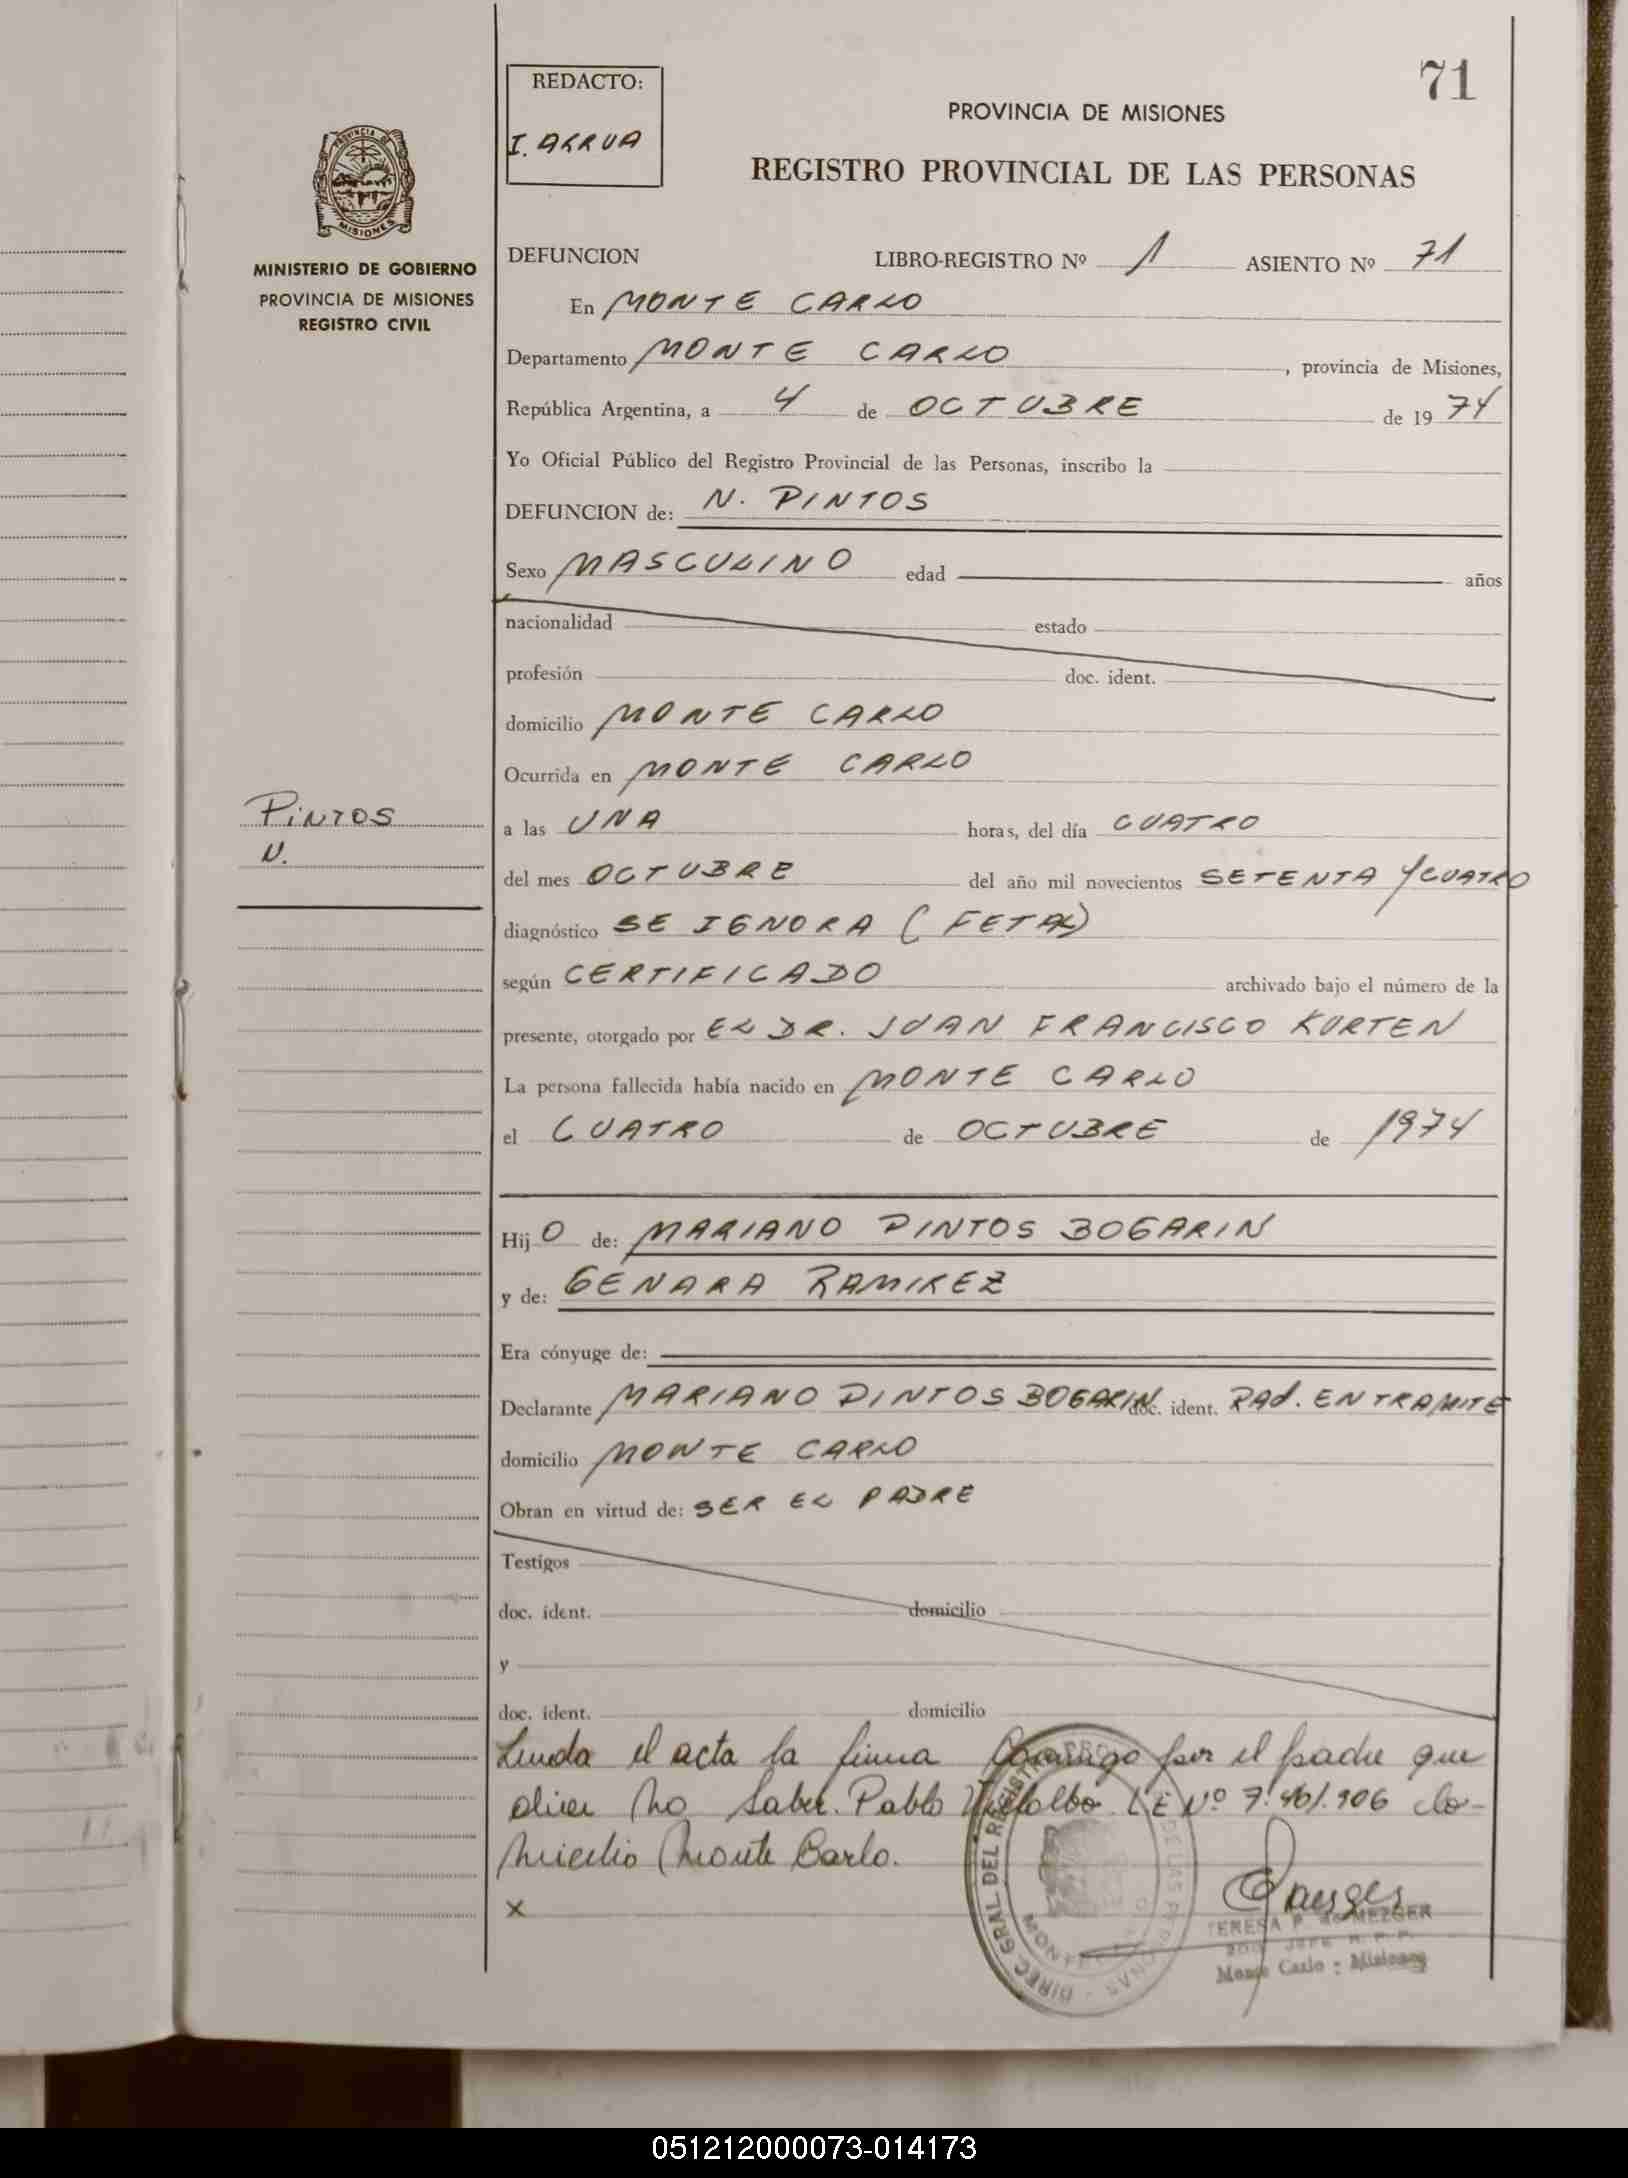 71
REDACTO:
I. ARRUA
PROVINCIA DE MISIONES
REGISTRO PROVINCIAL DE LAS PERSONAS
PROVINCIA DE
MISIONES
MINISTERIO DE GOBIERNO
PROVINCIA DE MISIONES
REGISTRO CIVIL
DEFUNCION LIBRO-REGISTRO Nº 1 ASIENTO Nº 71
En MONTE CARLO
Departamento MONTE CARLO, provincia de Misiones,
República Argentina, a 4 de OCTUBRE de 1974
Yo Oficial Público del Registro Provincial de las Personas, inscribo la
DEFUNCION de: N. PINTOS
Sexo MASCULINO edad años
nacionalidad estado
profesión doc. ident.
domicilio MONTE CARLO
Ocurrida en MONTE CARLO
PINTOS
N.
a las UNA horas, del día CUATRO
del mes OCTUBRE del año mil novecientos SETENTA Y CUATRO
diagnóstico SE IGNORA (FETAL)
según CERTIFICADO archivado bajo el número de la
presente, otorgado por EL DR. JUAN FRANCISCO KURTEN
La persona fallecida había nacido en MONTE CARLO
el CUATRO de OCTUBRE de 1974
Hij O de: MARIANO PINTOS BOGARIN
y de: GENARA RAMIREZ
Era cónyuge de:
Declarante MARIANO PINTOS BOGARIN doc. ident. RAD. EN TRAMITE
domicilio MONTE CARLO
Obran en virtud de: SER EL PADRE
Testigos
doc. ident. domicilio
y
doc. ident. domicilio
el acta la firma Conmigo por el padre que
dice no saber. Pablo Villalba LE Nº 7. 906 do-
micilio Monte Carlo.
x
DIREC. GRAL DEL REGISTRO PROV. DE LAS PERSONAS
MONTE CARLO
TERESA P. de MEZGER
JEFE R. P. P.
Monte Carlo - Misiones
051212000073-014173